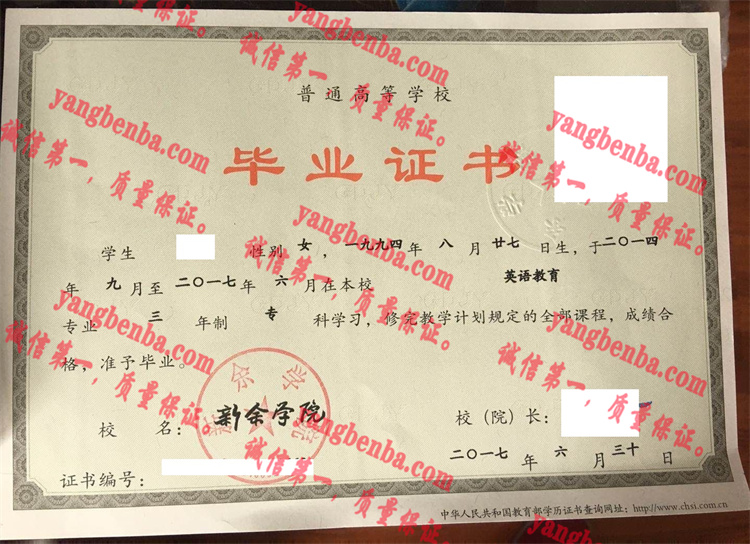 普通高等学校
毕业证书
学生 性别 女，一九九四年 八 月 廿七 日生，于二〇一四
年 九 月至 二〇一七年 六 月在本校 英语教育
专业 三 年制 专 科学习，修完教学计划规定的全部课程，成绩合
格，准予毕业。
校 名：新余学院
校（院）长：
二〇一七 年 六 月 三十 日
证书编号：
中华人民共和国教育部学历证书查询网址：http://www.chsi.com.cn
新余学院
yangbenba.com
诚信第一，质量保证。
yangbenba.com
诚信第一，质量保证。
yangbenba.com
诚信第一，质量保证。
yangbenba.com
诚信第一，质量保证。
yangbenba.com
诚信第一，质量保证。
yangbenba.com
诚信第一，质量保证。
yangbenba.com
诚信第一，质量保证。
yangbenba.com